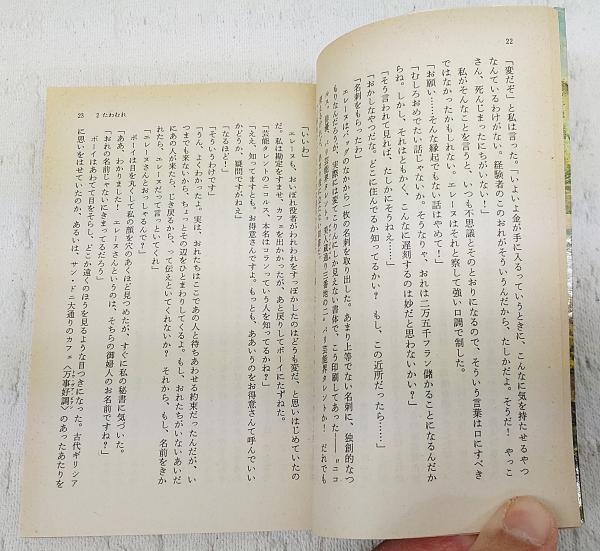 22
「変だぞ」と私は言った。「いよいよ金が手に入るっていうときに、こんなに気を持たせるやつ
なんているわけがない。経験者のこのおれがそういうんだから、たしかだよ。そうだ！　やっこ
さん、死んじまったにちがいない！」
私がそんなことを言うと、いつも不思議とそのとおりになるので、そういう言葉は口にすべき
ではなかったかもしれない。エレーヌはそれと察して強い口調で制した。
「お願い……そんな縁起でもない話はやめて！」
「むしろおめでたい話じゃないか。そうなりゃ、おれは二万五千フラン儲かることになるんだか
らね。しかし、それはともかく、こんなに遅刻するのは妙だと思わないかい？」
「そう言われて見れば、たしかにそうねえ……」
「おかしなやつだな。どこに住んでるか知ってるかい？　もし、この近所だったら……」
「名刺をもらったわ」
エレーヌはバッグのなかから一枚の名刺を取り出した。あまり上等でない名刺に、独創的なつ
もりなんだろうが、実際には変てこりんにしか見えない書体で、こう印刷してあった――《ニコ
23　2 たわむれ
「いいわ」
エレーヌも、おいぼれ役者がわれわれをすっぽかしたのはどうも変だ、と思いはじめていたの
だ。私は勘定をすませ、カフェを出かかったが、あと戻りしてボーイにたずねた。
「芸能タレントのニコルス、本名はコランっていう人を知ってるかね？」
「ええ、知ってますとも。お得意さんですよ。もっとも、ああいうのをお得意さんて呼んでいい
かどうか、疑問ですがねえ」
「なるほど！」
「そういうわけです」
「うん、よくわかったよ。実は、おれたちはここであの人と待ちあわせる約束だったんだが、い
つまでも来ないから、ちょっとその辺をひとまわりしてくるよ。もし、おれたちがいないあいだ
にあの人が来たら、じき戻るから、って伝えといてくれないか？　それから、もし、名前をきか
れたら、エレーヌさんだって言っといてくれ」
「エレーヌさんとおっしゃるんで？」
ボーイは目を丸くして私の顔を穴のあくほど見つめたが、すぐに私の秘書に気づいた。
「ああ、わかりました！　エレーヌさんというのは、そちらの御婦人のお名前ですね？」
「おれの名前じゃないにきまってるだろう」
ボーイはあわてて目をそらし、どこか遠くのほうを見るような目つきになった。古代ギリシア
に思いをはせていたのか、あるいは、サン・ドニ大通りのカフェ〈万事好調〉のあったあたりを